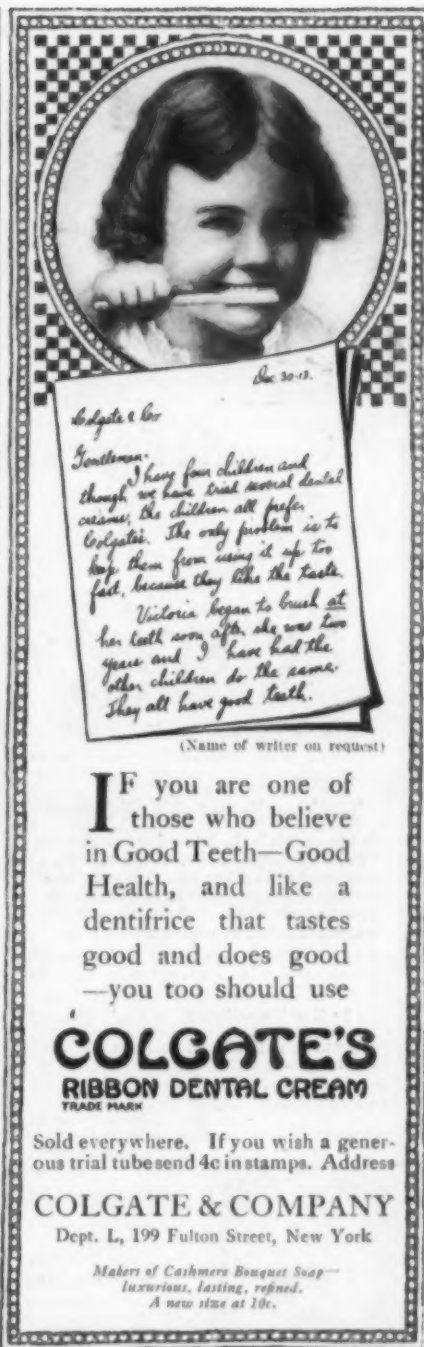 Dec. 30-13.
Colgate & Co
Gentlemen.
I have four children and
though we have tried several dental
creams, the children all prefer
Colgate's. The only problem is to
keep them from using it up too
fast, because they like the taste.
Victoria began to brush at
her teeth soon after she was two
years and I have had the
other children do the same.
They all have good teeth.
(Name of writer on request)
IF you are one of
those who believe
in Good Teeth—Good
Health, and like a
dentifrice that tastes
good and does good
—you too should use
COLGATE'S
RIBBON DENTAL CREAM
TRADE MARK
Sold everywhere. If you wish a gener-
ous trial tube send 4c in stamps. Address
COLGATE & COMPANY
Dept. L, 199 Fulton Street, New York
Makers of Cashmere Bouquet Soap—
luxurious, lasting, refined.
A new size at 10c.